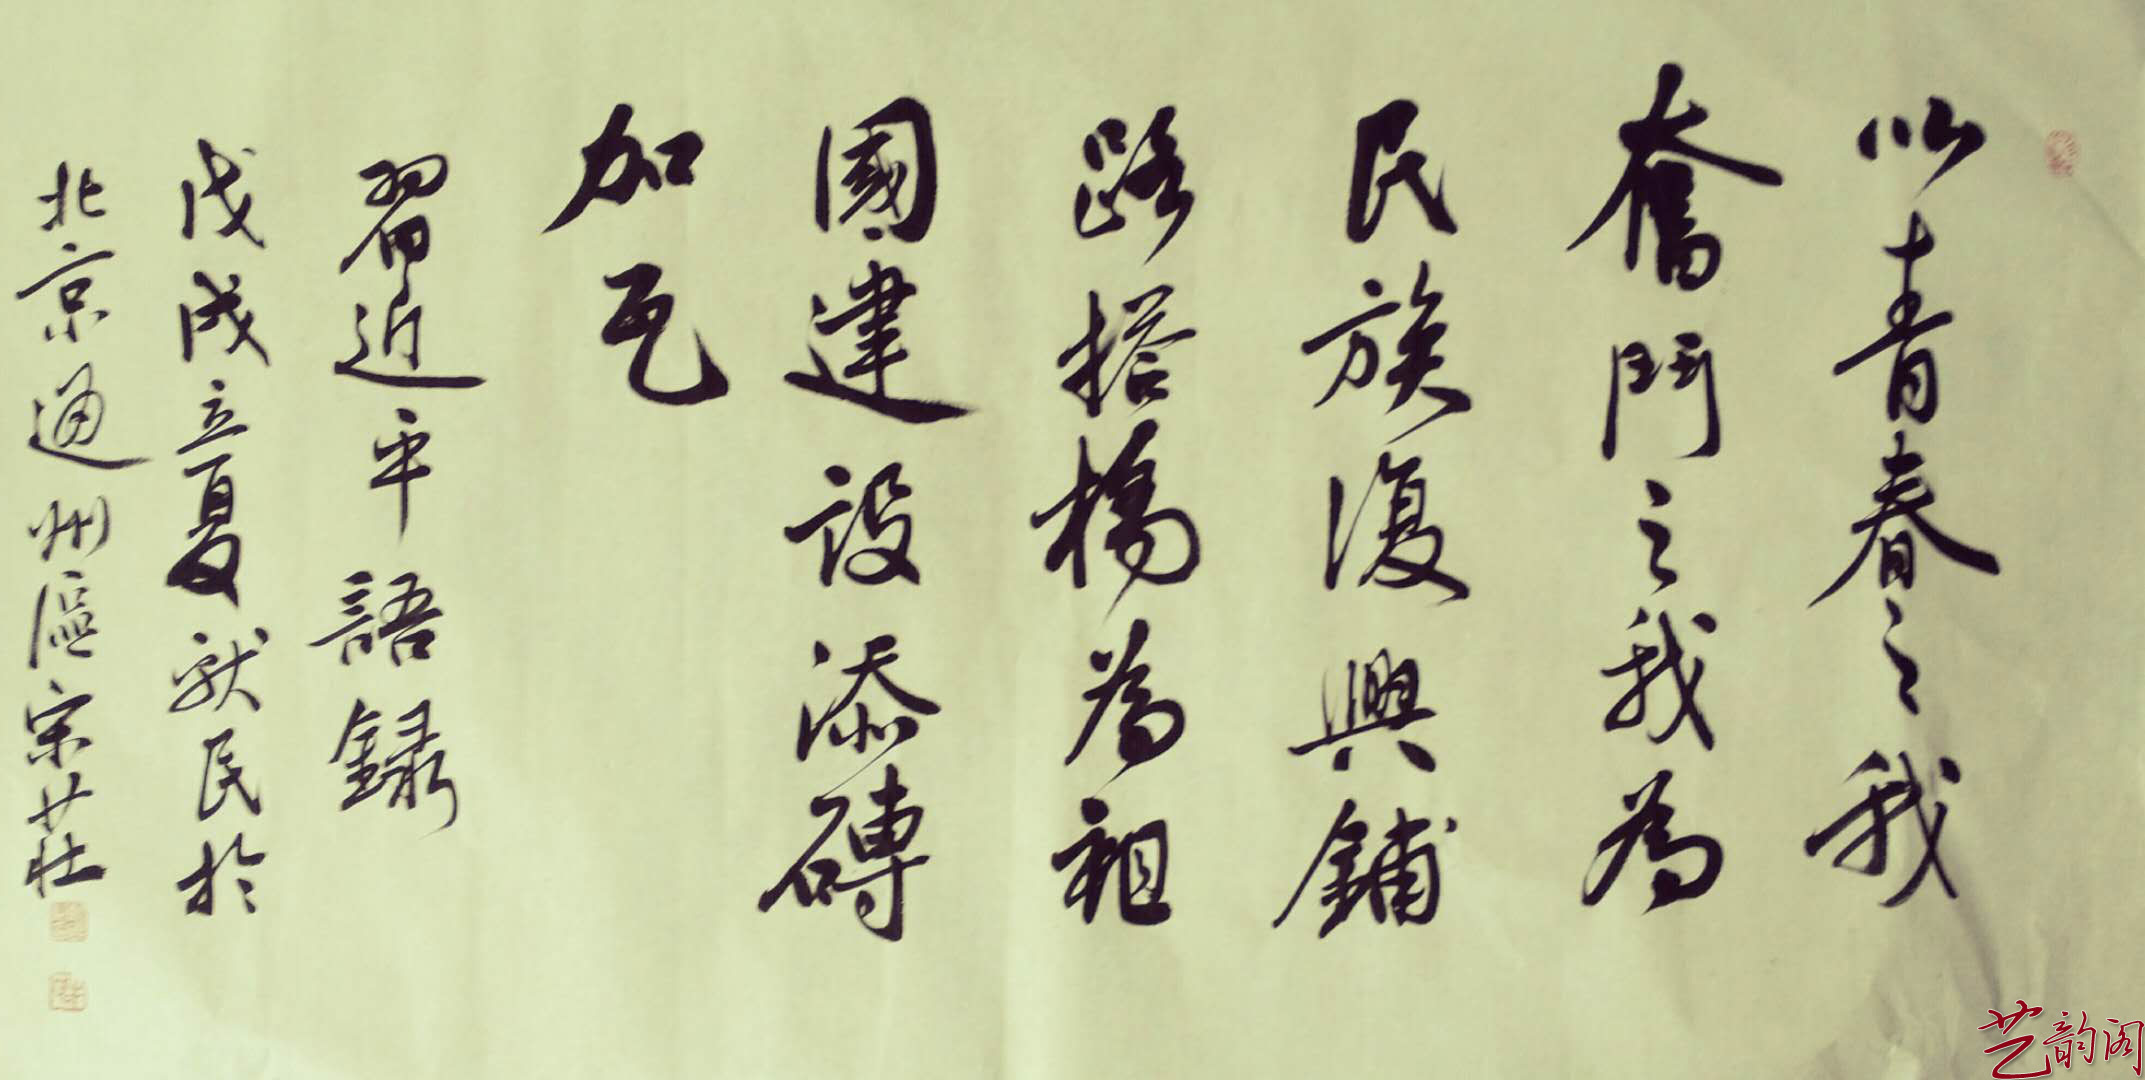 以青春之我
奮鬥之我為
民族復興鋪
路搭橋為祖
國建設添磚
加瓦
習近平語錄
戊戌立夏獻民於
北京通州區宋莊
艺韵阁